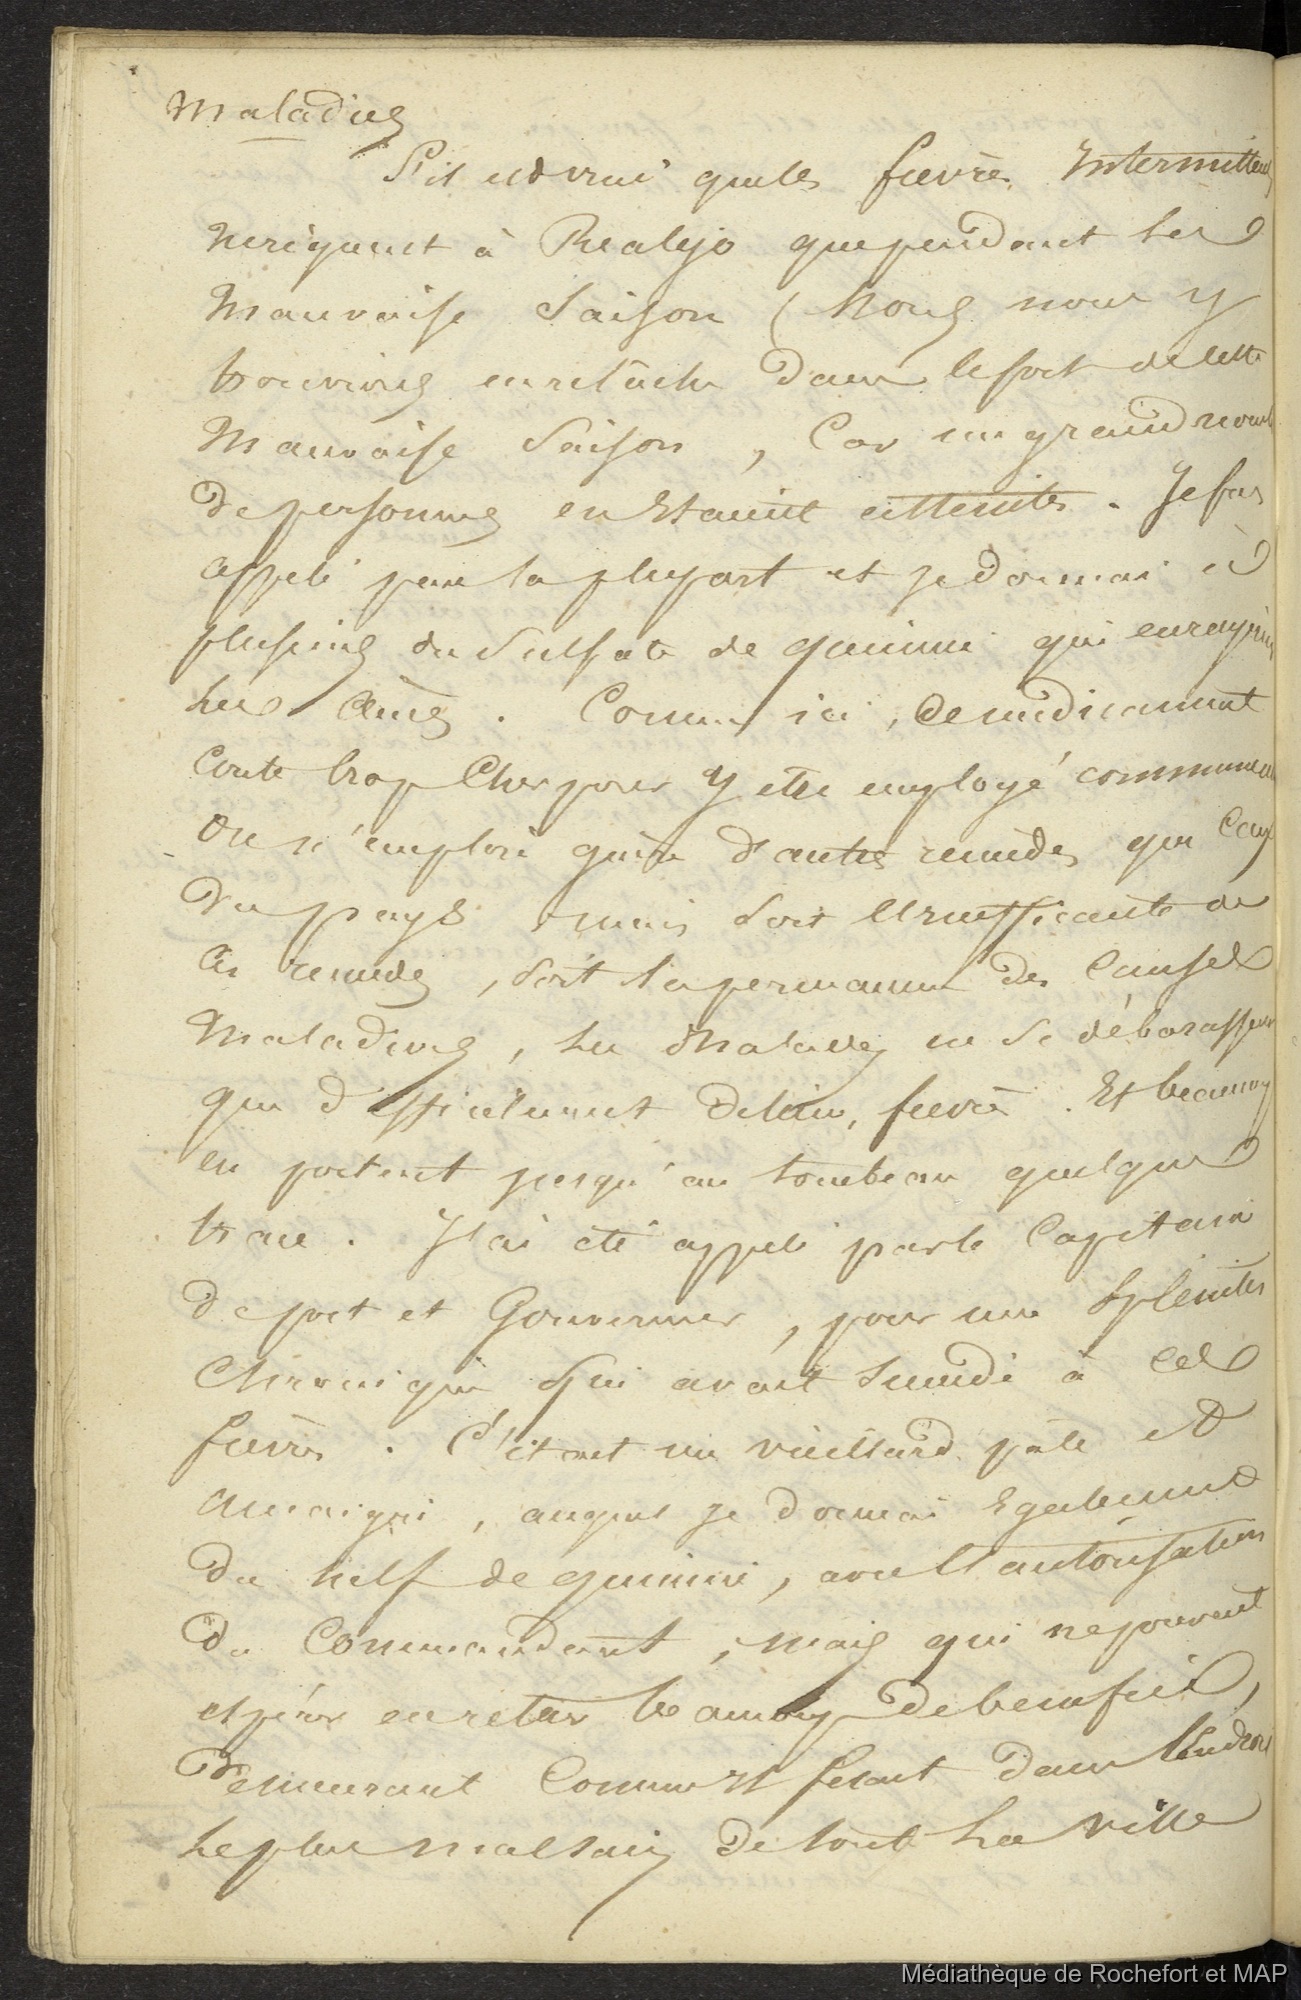 Maladies
S'il est vrai que les fievres Intermittentes
ne règnent à Realejo que pendant la
Mauvaise Saison (Nous nous y
trouvions en relâche dans le fort de cette
Mauvaise Saison, Car un grand nomb
de personnes en Etaient atteintes. Je fus
appelé pour la plupart et je donnai à
plusieurs du Sulfate de quinine qui enrayèrent
les accès. Comme ici, ce médicament
Coute trop Cher pour y etre employé communement
On n'emploie guère d'autres remèdes que Ceux
Du pays mais soit l'insuffisante de
Ces remèdes, soit la permanence des Causes
Maladives, les Malades ne se débarassent
que difficilement de leur fievre. Et beaucoup
en portent jusqu'au tombeau quelque
trace. J'ai été appelé par le Capitaine
de port et Gouverneur, pour une Splénite
Chronique qui avait succédé à ces
fievres. C'etait un vieillard pâle et
amaigri, auquel je donnai Egalement
du Sulf de quinine, avec l'autorisation
du Commandant, mais qui ne pouvait
espérer en retirer beaucoup de benefice,
Demeurant Comme il fesait dans l'Endroit
le plus malsain de toute la ville